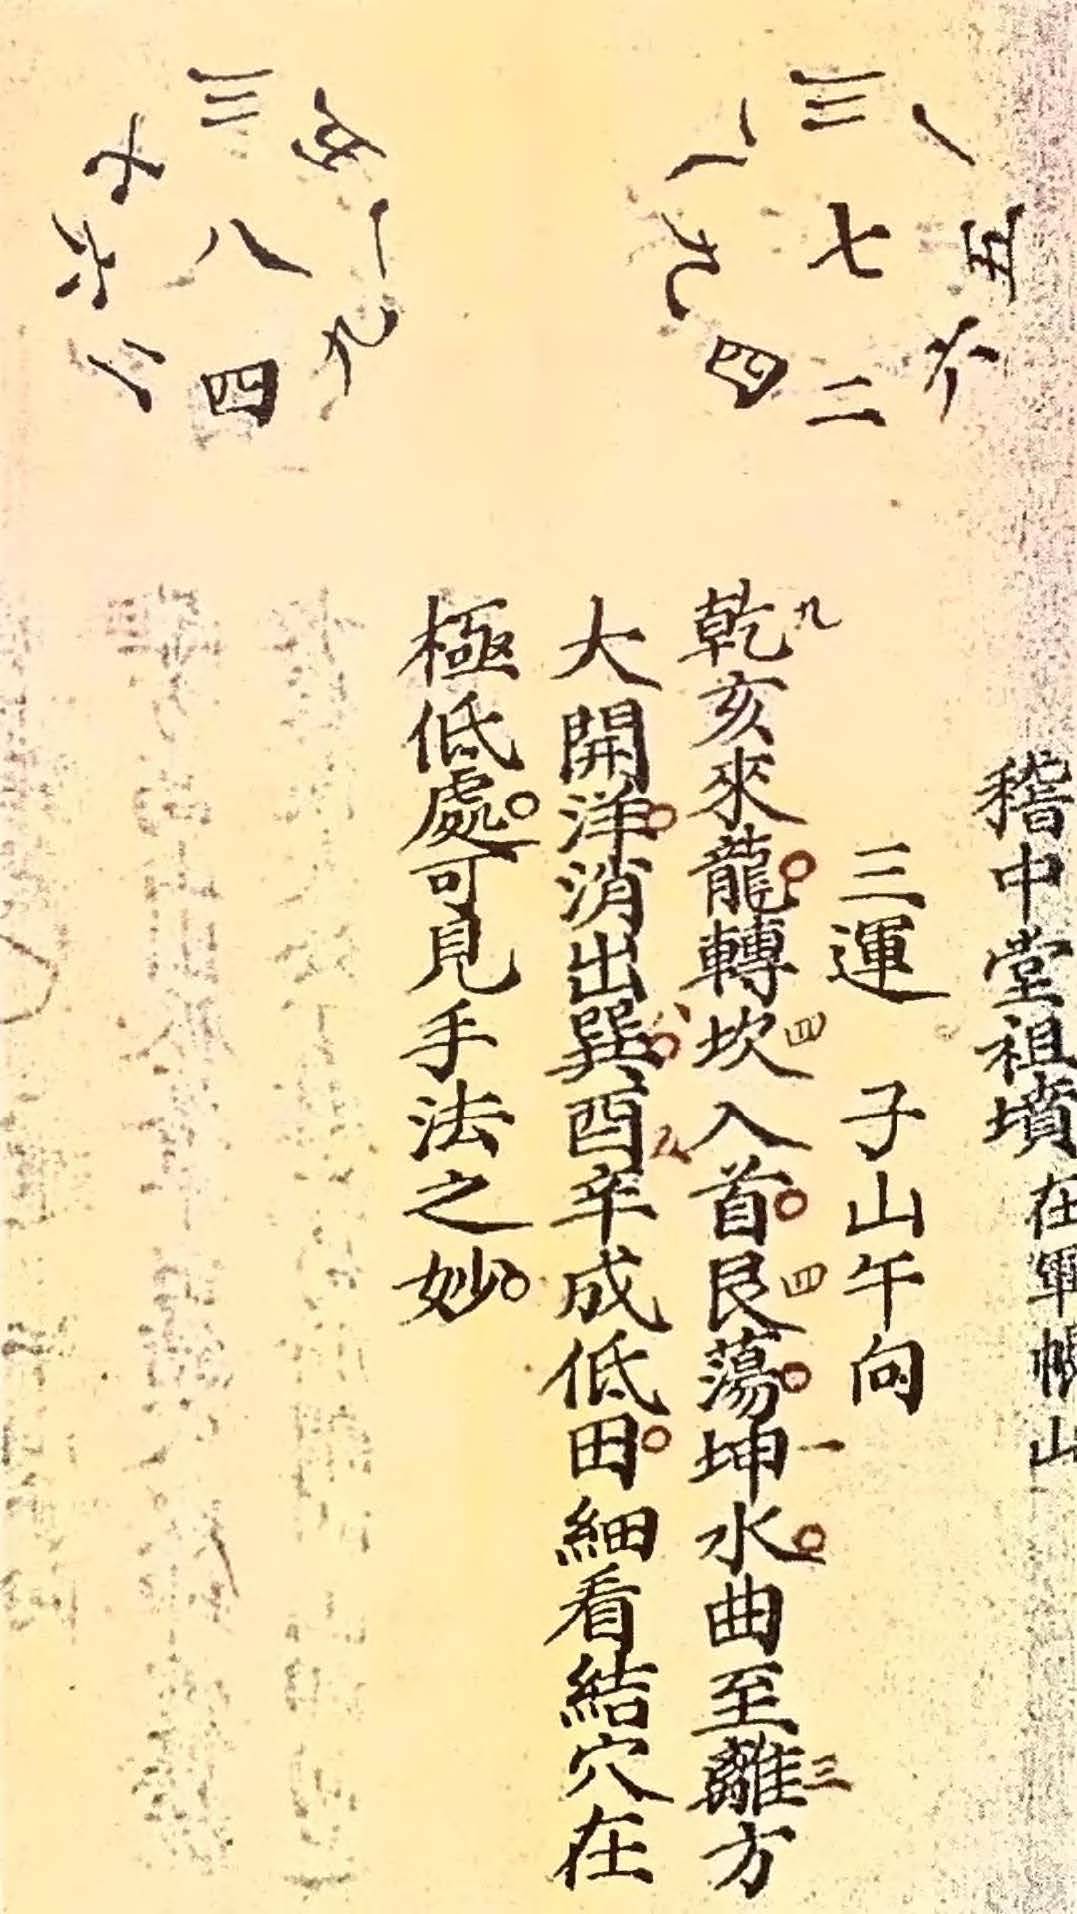 稽中堂祖墳在軍帳山
三運　子山午向
乾亥來龍轉坎入首艮蕩坤水曲至離方
九　四　四　一　三
大開洋消出巽酉辛成低田細看結穴在
八
極低處可見手法之妙
八　三　一
九　七　五
四　二　六
七　三　五
六　八　一
二　四　九